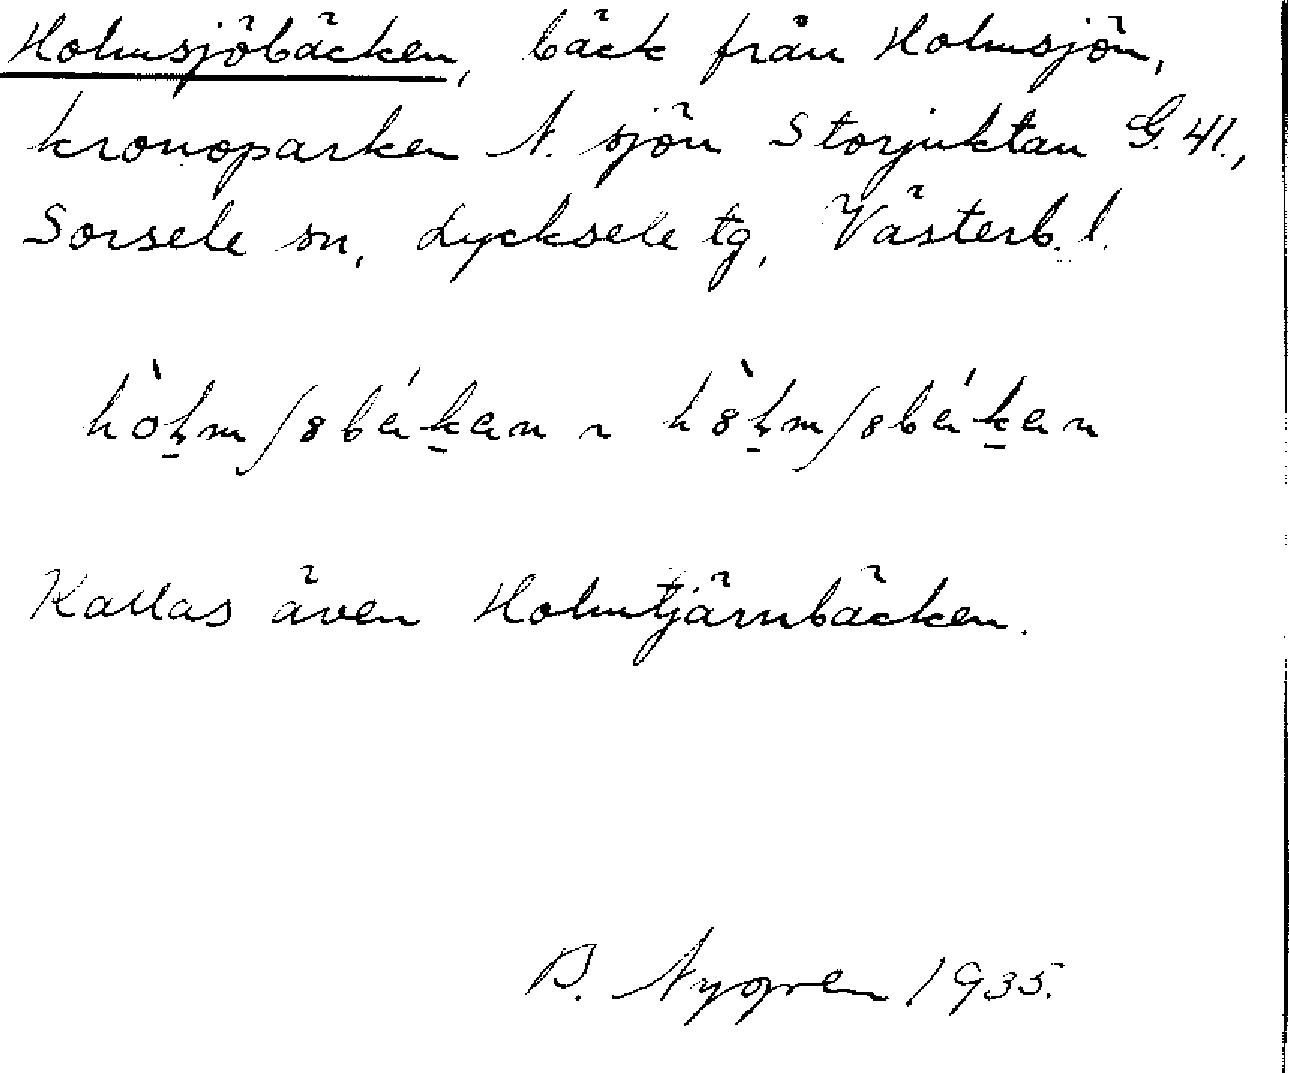 Holmsjöbäcken, bäck från Holmsjön,
kronoparken N. sjön Storjuktan G. 41.,
Sorsele sn, Lycksele tg, Västerb. l.
Kallas även Holmtjärnbäcken.
B. Nygren 1935.